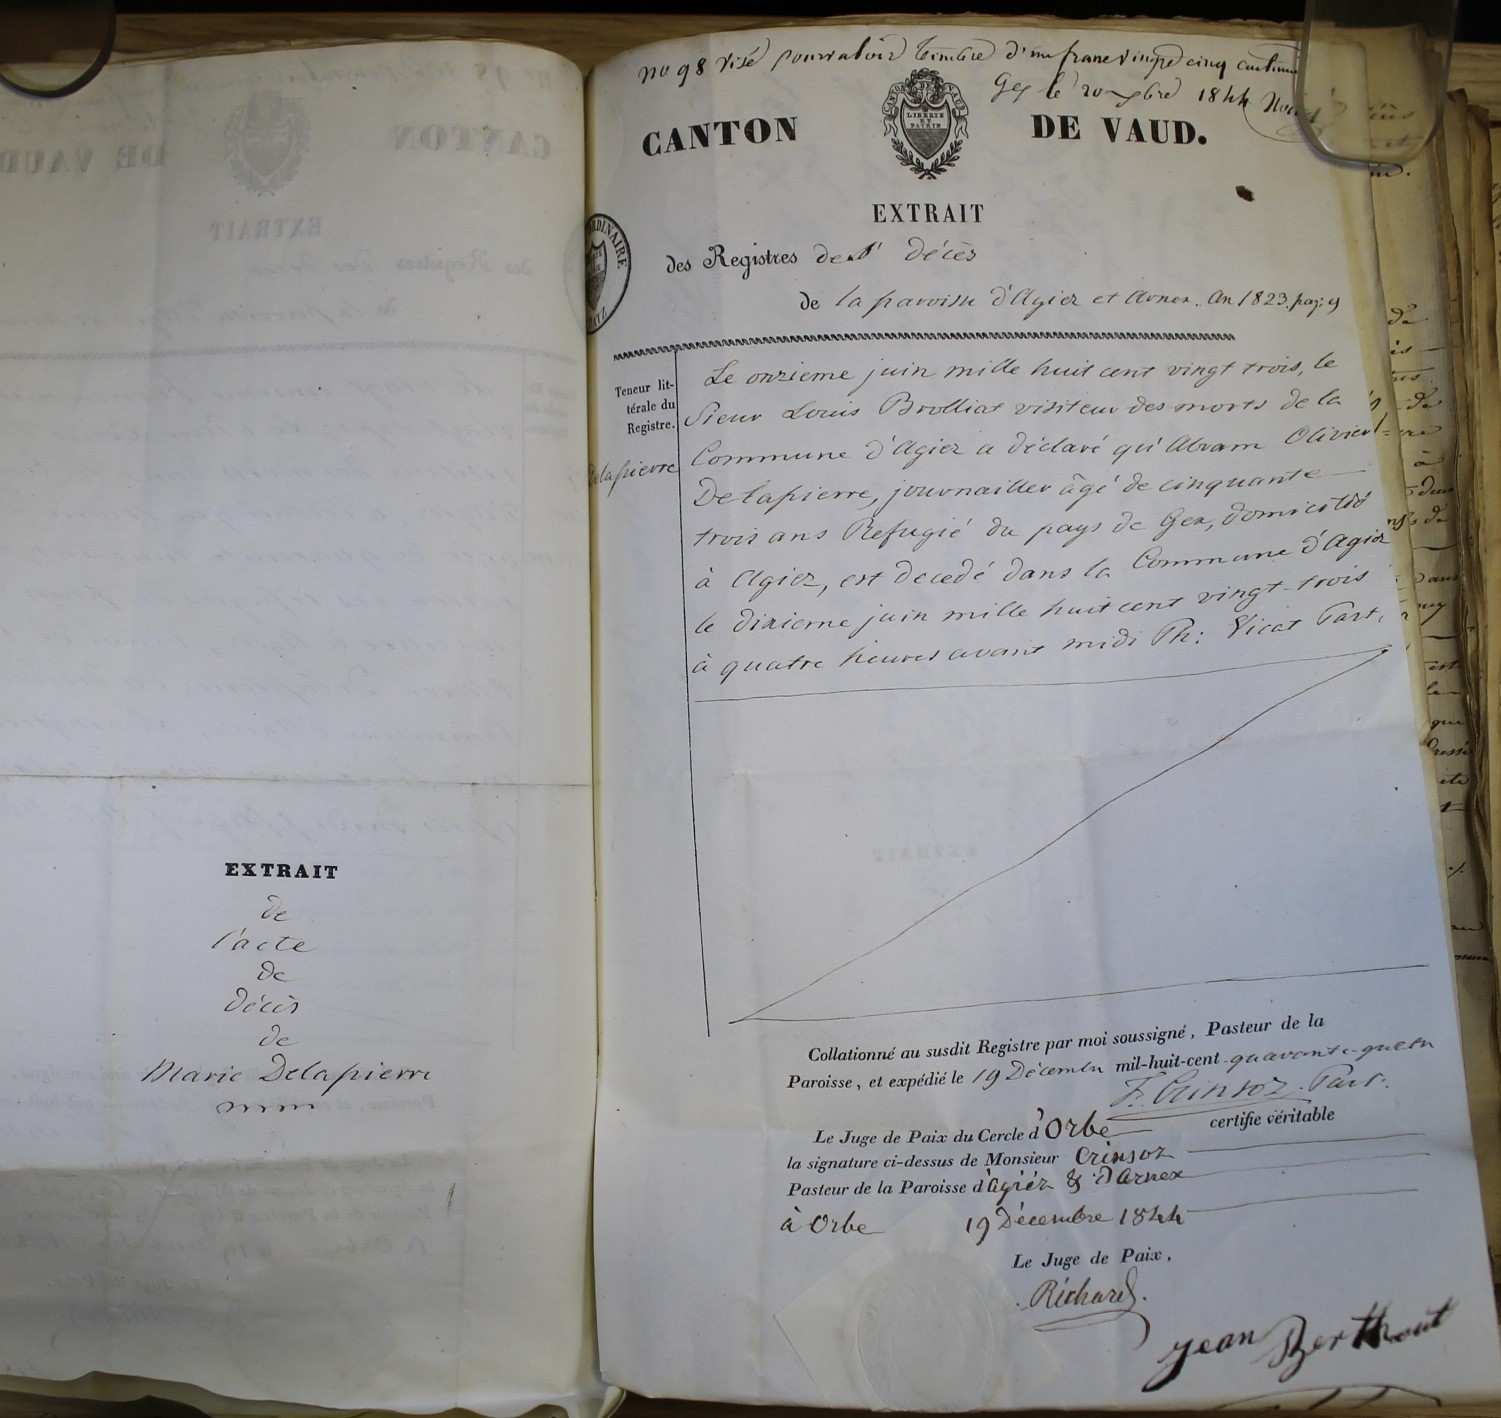 EXTRAIT
de
l'acte
de
décès
de
Marie Delapierre
No 98 Visé pour valoir timbre d'un franc vingt cinq centimes
Gex le 20 Xbre 1844
CANTON DE VAUD.
LIBERTE ET PATRIE
EXTRAIT
des Registres de décès
de la paroisse d'Agiez et Arnex. An 1823. pag: 9
Teneur lit-
térale du
Registre.
Delapierre
Le onzieme juin mille huit cent vingt trois, le
Sieur Louis Brolliat visiteur des morts de la
Commune d'Agiez a déclaré qu'Abram Olivier
Delapierre, journailler âgé de cinquante
trois ans Refugié du pays de Gex, domicilié
à Agiez, est decedé dans la Commune d'Agiez
le dixieme juin mille huit cent vingt-trois
à quatre heures avant midi Ph: Vicat Past.
Collationné au susdit Registre par moi soussigné, Pasteur de la
Paroisse, et expédié le 19 Décembre mil-huit-cent quarante-quatre
F. Crinsoz. Past:
Le Juge de Paix du Cercle d'Orbe certifie véritable
la signature ci-dessus de Monsieur Crinsoz
Pasteur de la Paroisse d'Agiéz & d'Arnex
à Orbe 19 Décembre 1844
Le Juge de Paix,
Richard.
Jean Berthout